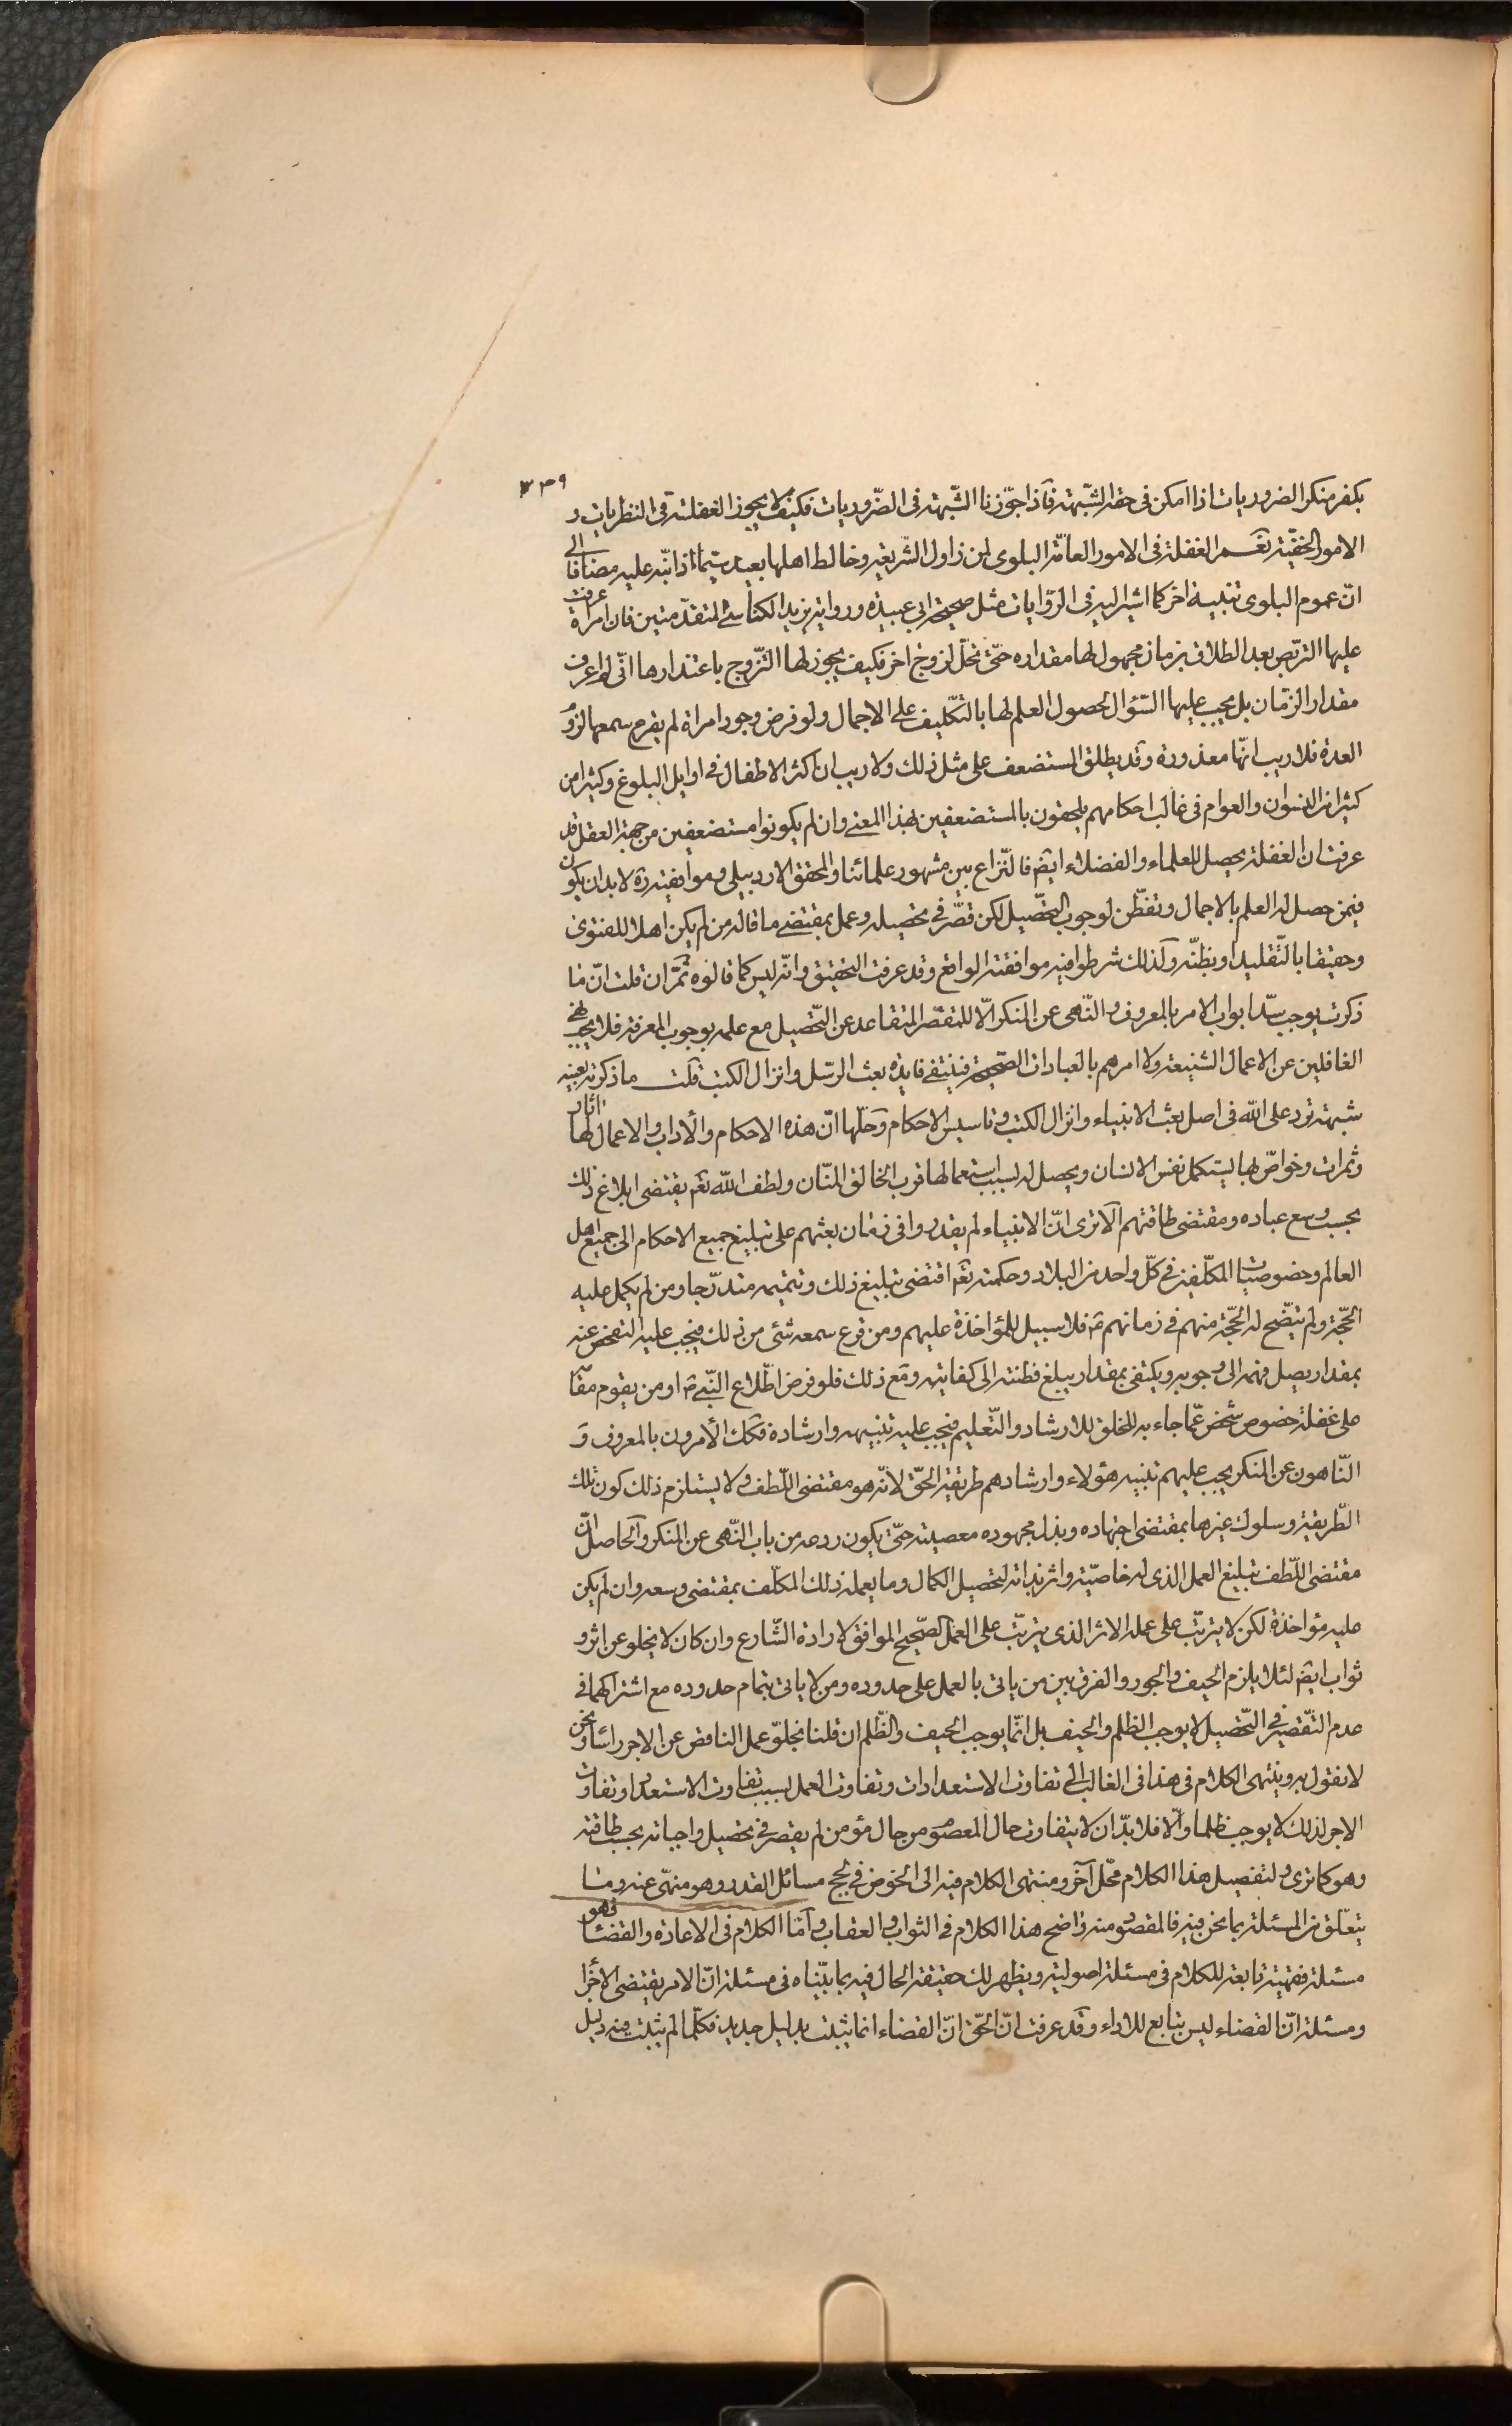 ٣٣٩
بكفر منكر الضروريات اذا امكن فى حقه الشّبهة فآذا جوّزنا الشّبهة فى الضّروريات فكيف لا يجوز الغفلة فى النظريات و
الامور الخفيّة نعم الغفلة فى الامور العامّة البلوى لمن زاول الشّريعة وخالط اهلها بعيد سيّما اذا نبّه عليه مضافا الى
انّ عموم البلوى تنبيه اخر كما اشير اليه فى الرّوايات مثل صحيحة ابى عبيدة ورواية يزيد الكناسى المتقدّمتين فان امراة عرفت
عليها التربّص بعد الطلاق بزمان مجهول لها مقداره حتّى تحلّ لزوج اخر فكيف يجوز لها التّزوج باعتذارها انّى لم اعرف
مقدار الزّمان بل يجب عليها السّؤال لحصول العلم لها بالتّكليف على الاجمال ولو فرض وجود امراة لم يقرع سمعها لزوم
العدة فلا ريب انّها معذورة وقد يطلق المستضعف على مثل ذلك ولا ريب ان اكثر الاطفال فى اوايل البلوغ وكثيرا من
كثيرا من النسوان والعوام فى غالب احكامهم يلحقون بالمستضعفين بهذا المعنى وان لم يكونوا مستضعفين من جهة العقل قد
عرفت ان الغفلة يحصل للعلماء والفضلاء ايضم فالنّزاع بين مشهور علمائنا والمحقق الاردبيلى وموافقيه ره لا بد ان يكون
فيمن حصل له العلم بالاجمال وتفطّن لوجوب التحّصيل لكن قصّر فى تحصيله وعمل بمقتضى ما قاله من لم يكن اهلا للفتوى
وحقيقا بالتّقليد او بظنّه وكذلك شرطوا فيه موافقته الواقع وقد عرفت التحقيق وانّه ليس كما قالوه ثمّ ان قلت انّ ما
ذكرت يوجب سدّ ابواب الامر بالمعروف والنّهى عن المنكر الّا للمقصّر المتقاعد عن التّحصيل مع علمه بوجوب المعرفة فلا يجب نهى
الغافلين عن الاعمال الشنيعة ولا امرهم بالعبادات الصّحيحة فينتفى فايدة بعث الرّسل وانزال الكتب قلت ما ذكرته بعينه
شبهة ترد على الله فى اصل بعث الانبياء وانزال الكتب وتاسيس الاحكام وحلّها انّ هذه الاحكام والاداب والاعمال لها اثار
وثمرات وخواصّ بها ليتكمل نفس الانسان ويحصل له بسبب استعمالها قرب الخالق المنّان ولطف الله تعم يقتضى ابلاغ ذلك
بحسب وسع عباده ومقتضى طاقتهم الا ترى انّ الانبياء لم يقدروا فى زمان بعثهم على تبليغ جميع الاحكام الى جميع اهل
العالم وخصوصيات المكلّفين فى كلّ واحد من البلاد وحكمته تعم اقتضى تبليغ ذلك وتتميمه متدرّجا ومن لم يكمل عليه
الحّجة ولم يتّضح له الحّجة منهم فى زمانهم ع فلا سبيل للمؤاخذة عليهم ومن قرع سمعه شئى من ذلك فيجب عليه التفحّص عنه
بمقدار يصل فهمه الى وجوبه ويكتفى بمقدار يبلغ فطنته الى كفايته ومع ذلك فلو فرض اطّلاع النّبى ص او من يقوم مقامه
على غفلة خصوص شخص عمّا جاء به للخلق للارشاد والتّعليم فيجب عليه تنبيهه وارشاده فكك الأمرون بالمعروف و
النّاهون عن المنكر يجب عليهم تنبيه هؤلاء وارشادهم طريقة الحّق لانّه هو مقتضى اللّطف ولا يستلزم ذلك كون تلك
الطّريقة وسلوك غيرها بمقتضى اجتهاده وبذل مجهوده معصيته حتّى يكون ردعه من باب النّهى عن المنكر والحاصل انّ
مقتضى اللّطف تبليغ العمل الذى له خاصيّة واثر بذاته لتحصيل الكمال وما يعمله ذلك المكلّف بمقتضى وسعه وان لم يكن
عليه مؤاخذة لكن لا يترتّب على عمله الاثر الذى يترتّب على العمل الصّحيح الموافق لارادة الشّارع وان كان لا يخلو عن اثر و
ثواب ايضم لئلا يلزم الحيف والجور والفرق بين من ياتى بالعمل على حدوده ومن لا ياتى بتمام حدوده مع اشتراكهما فى
عدم التّقصير فى التّحصيل لا يوجب الظلم والحيف بل انّما يوجب الحيف والظّلم ان قلنا بخلوّ عمل الناقص عن الاجر راسا ونحن
لا نقول به وينتهى الكلام فى هذا فى الغالب الى تفاوت الاستعدادات وتفاوت العمل بسبب تفاوت الاستعداد وتفاوت
الاجر لذلك لا يوجب ظلما والّا فلا بدّ ان لا يتفاوت حال المعصوم من حال مؤمن لم يقصر فى تحصيل واجباته بحسب طاقته
وهو كما ترى ولتفصيل هذا الكلام محّل آخر ومنتهى الكلام فيه الى الخوض فى لجج مسائل القدر وهو منهىّ عنه وما
يتعلّق من المسئلة بما نحن فيه فالمقصود منه واضح هذا الكلام فى الثواب والعقاب وامّا الكلام فى الاعادة والقضاء فهو
مسئلة فقهيّة تابعة للكلام فى مسئلة اصولية ويظهر لك حقيقة الحال فيه بما بيّناه فى مسئلة انّ الامر يقتضى الأجزا
ومسئلة انّ القضاء ليس بتابع للاداء وقد عرفت انّ الحّق انّ القضاء انما يثبت بدليل جديد فكلّما لم يثبت فيه دليل